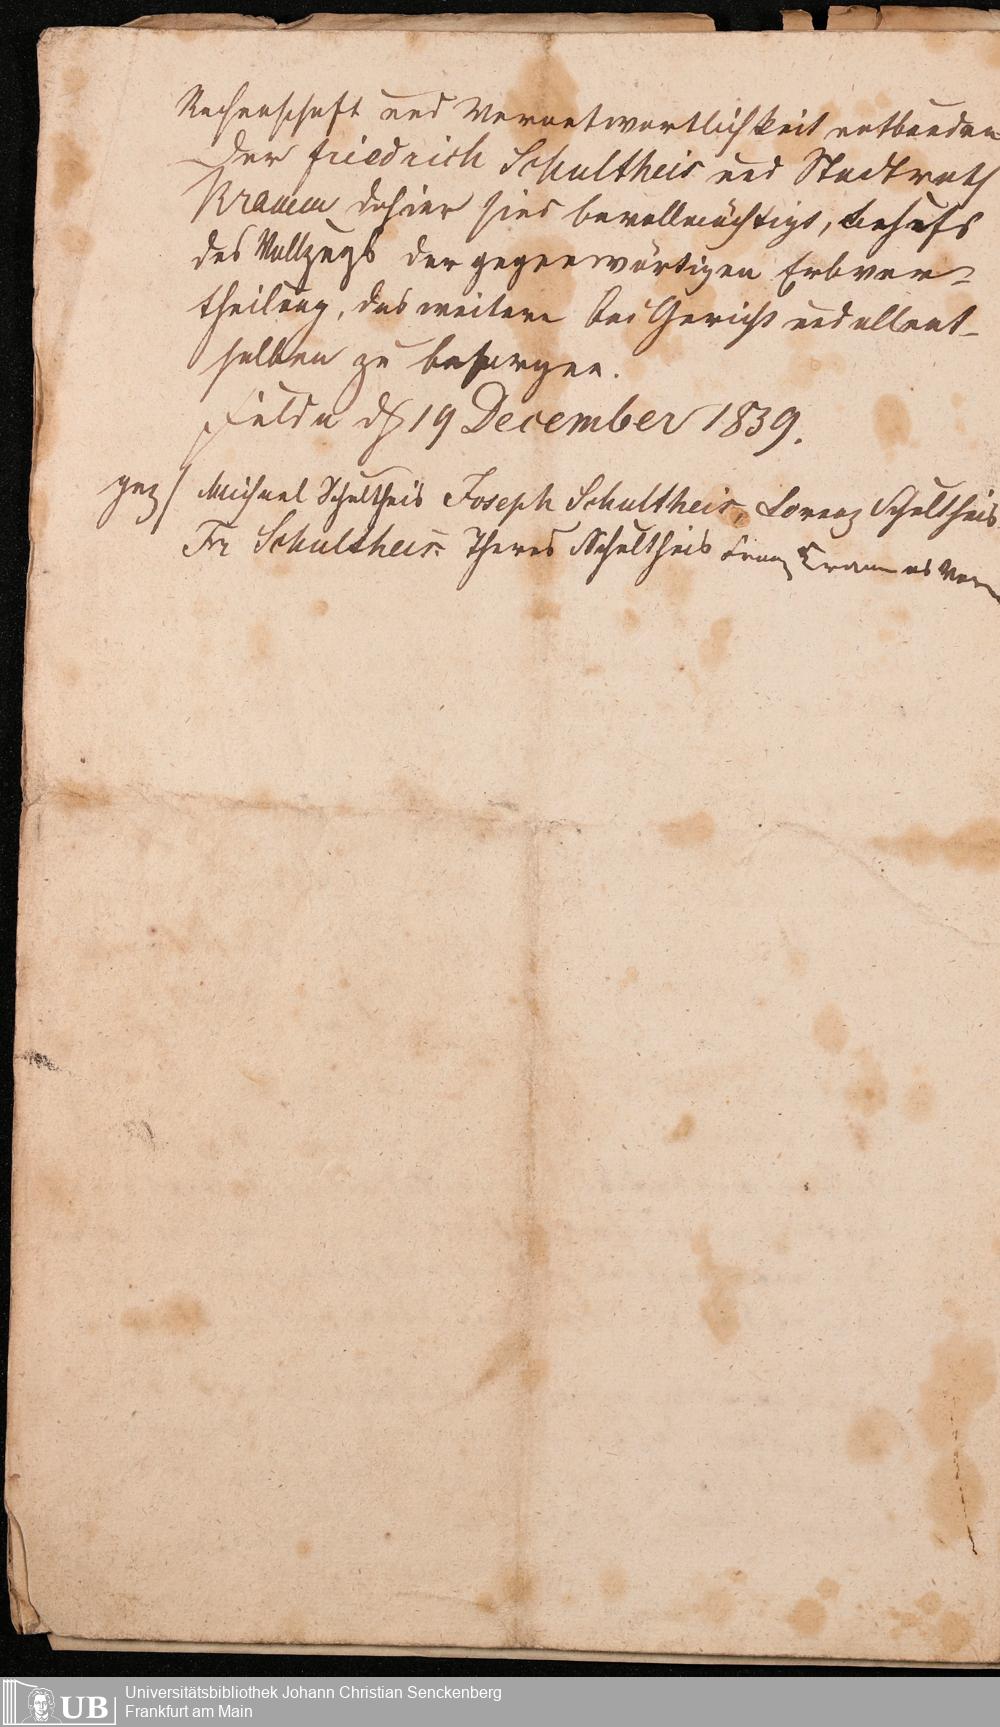 Rechenschaft und Verantwortlichkeit entbunden
Der Friedrich Schultheis und Stadtrath
Kramm dahier sind bevollmächtigt, behufs
des Vollzugs der gegenwärtigen Erbver-
theilung, das weitere bei Gericht und allent-
halben zu besorgen.
Fulda d 19 December 1839.
gez/ Michael Schultheis Joseph Schultheis, Lorenz Schultheis
Fr Schultheis Theres Schultheis Franz Kramm als
UB
Universitätsbibliothek Johann Christian Senckenberg
Frankfurt am Main